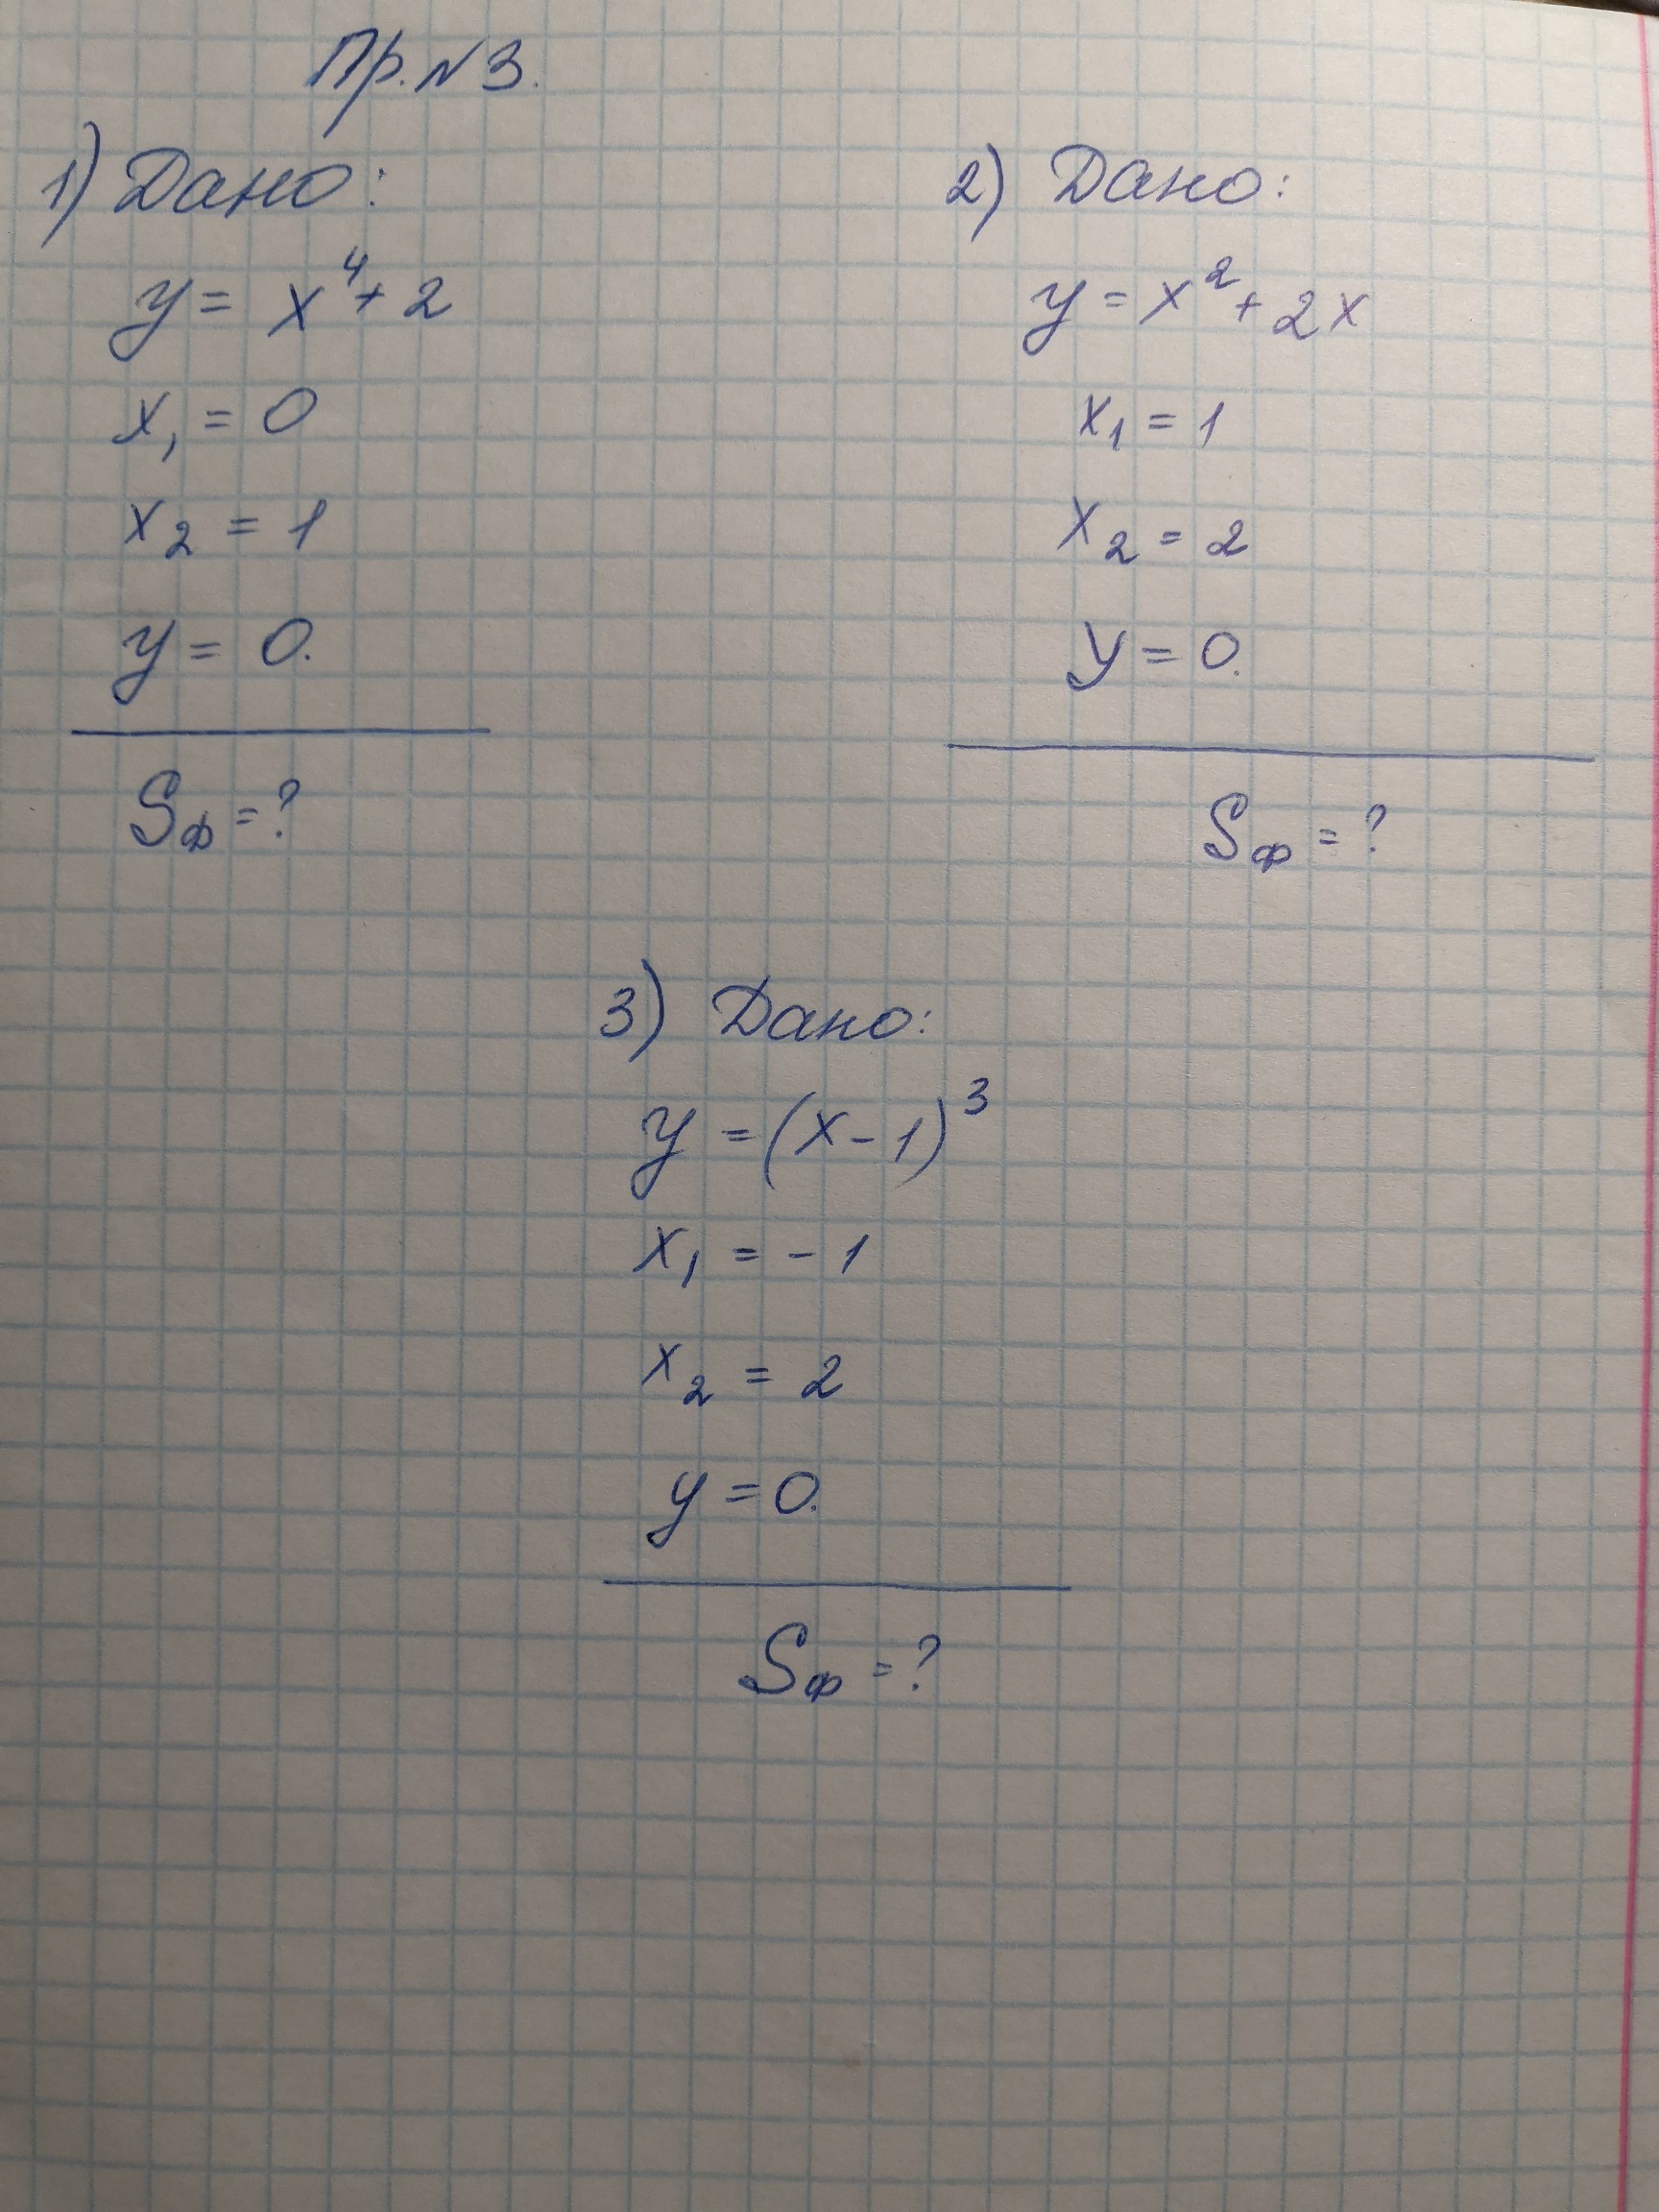 Пр. N 3.
1) Дано:
y = x⁴ + 2
x₁ = 0
x₂ = 1
y = 0.
Sф = ?
2) Дано:
y = x² + 2x
x₁ = 1
x₂ = 2
y = 0.
Sф = ?
3) Дано:
y = (x - 1)³
x₁ = - 1
x₂ = 2
y = 0.
Sф = ?